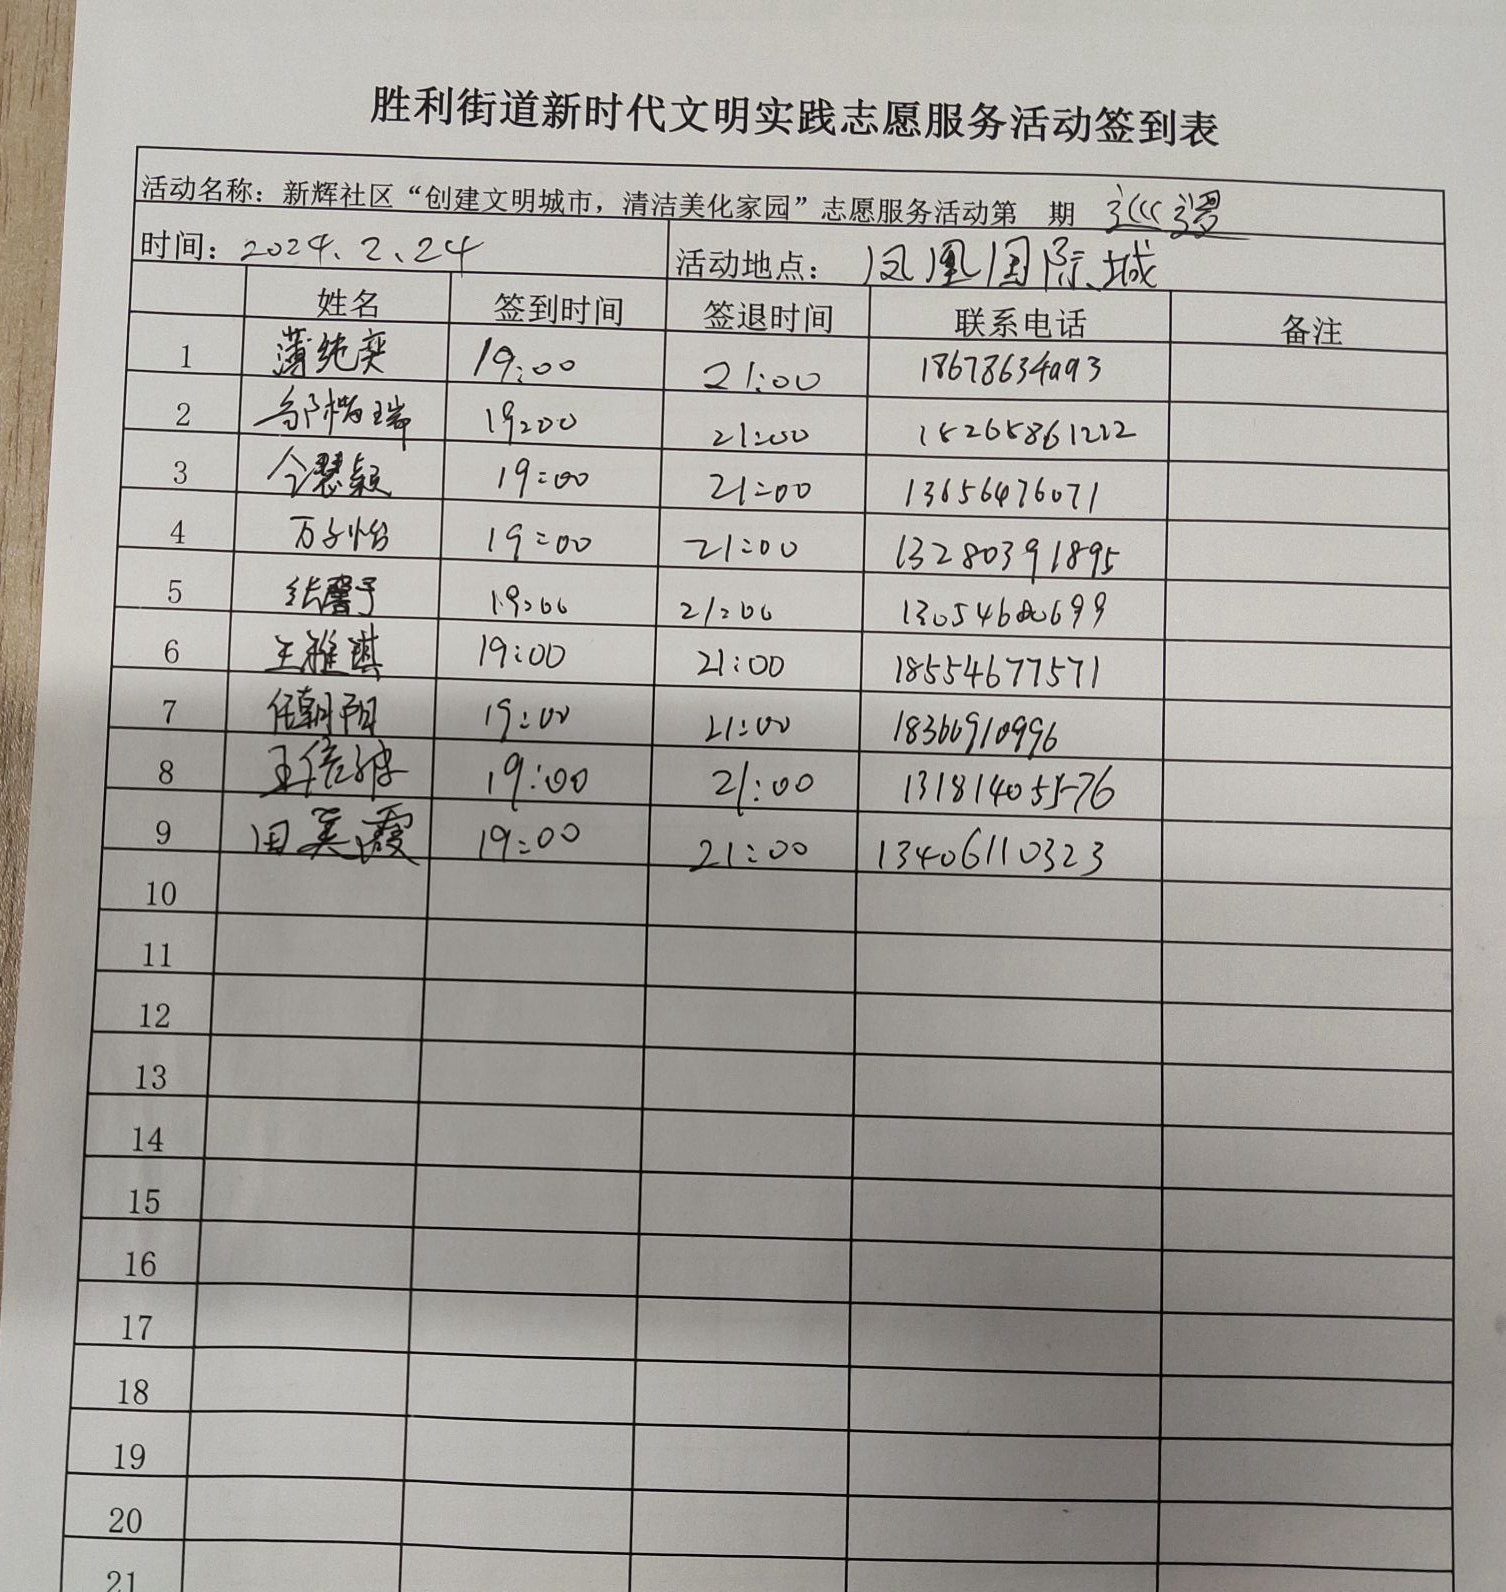 胜利街道新时代文明实践志愿服务活动签到表
活动名称：新辉社区“创建文明城市，清洁美化家园”志愿服务活动第 期 巡逻
时间：2024.2.24 活动地点：凤凰国际城
姓名 签到时间 签退时间 联系电话 备注
1 薄纯奕 19:00 21:00
2 邹楷瑞 19:00 21:00 15265861222
3 仝慧颖 19:00 21:00 13656476071
4 万子怡 19:00 21:00 13280391895
5 张馨予 19:00 21:00
6 王雅琪 19:00 21:00 18554677571
7 任朝阳 19:00 21:00 18366910996
8 19:00 21:00 13181405576
9 田美霞 19:00 21:00 13406110323
10
11
12
13
14
15
16
17
18
19
20
21